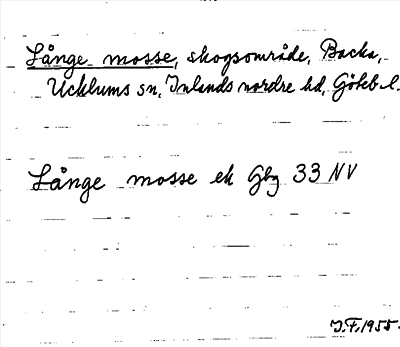 Långe mosse, skogsområde, Backa,
Ucklums sn, Inlands nordre hd, Göteb. l.
Långe mosse ek Gbg 33 NV
J.F. 1955.